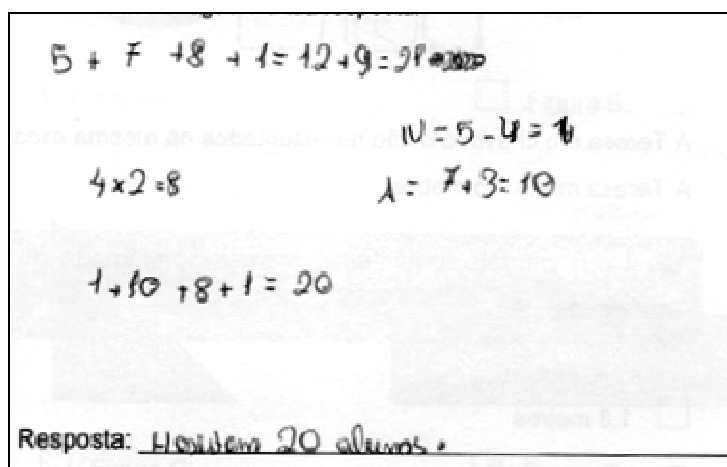 5 + 7 + 8 + 1 = 12 + 9 = 21
N = 5 - 4 = 1
4 x 2 = 8
A = 7 + 3 = 10
1 + 10 + 8 + 1 = 20
Resposta: 20 alunos.